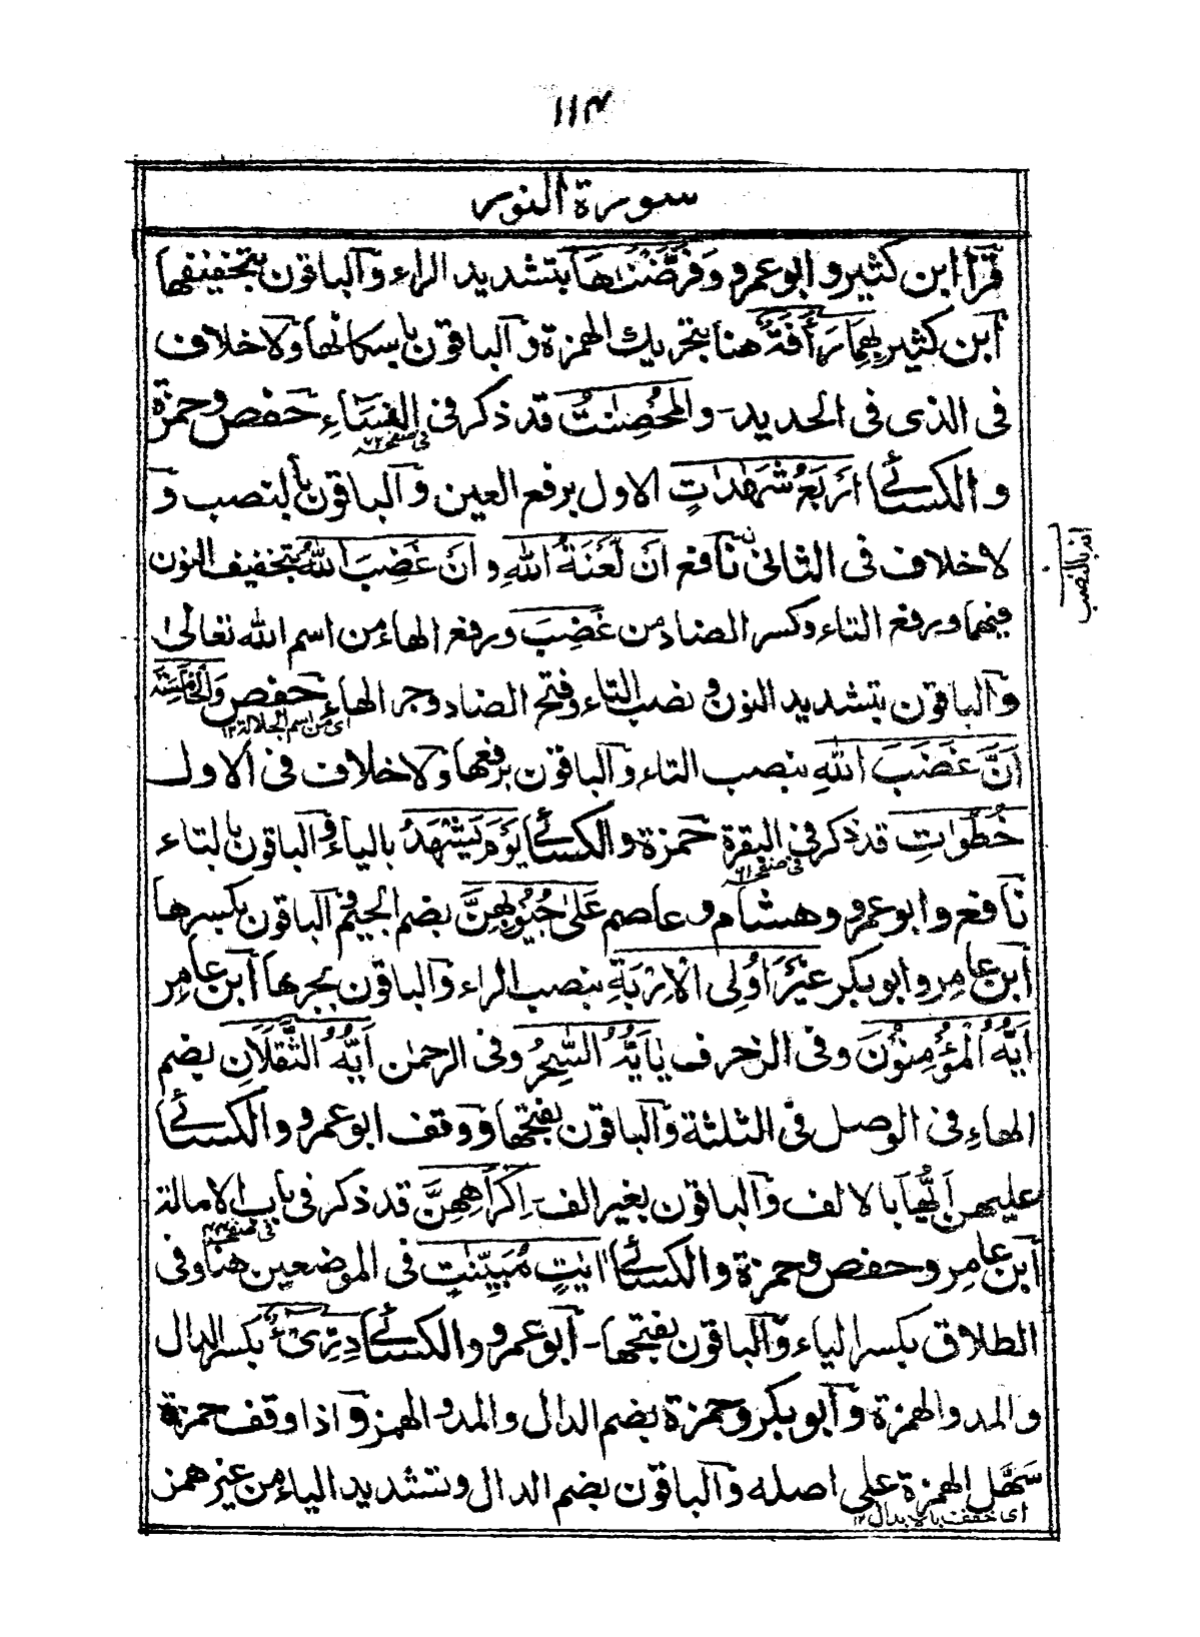 ۱۱۴
سورة النور
قرأ ابن كثير و ابو عمرو وَفَرَّضْنٰهَا بتشديد الراء وآلباقون بتخفيفها
آبن كثير بِهِمَا رَأَفَةٌ هنا بتحريك الهمزة وآلباقون باسكانها ولا خلاف
فى الذى فى الحديد - والمُحْصِنٰتُ قد ذكر فى النِّسَاءِ حفص وحمزة
فى صفحه ۷۲
والكسائے اَرْبَعُ شَهٰدٰتٍ الاول برفع العين وآلباقون بالنصب و
لا خلاف فى الثانى نافع اَنْ لَّعْنَةُ اللّٰهِ و اَنْ غَضِبَ اللّٰهُ بتخفيف النون
انه بالنصب
فيهما ورفع التاء وكسر الضاد من غَضِبَ ورفع الهاء من اسم الله تعالىٰ
وآلباقون بتشديد النون و نصب التاء وفتح الضاد وجر الهاء حفص وَالْخَامِسَةَ
اى من اسم الجلالة ۱۲
اَنَّ غَضَبَ اللّٰهِ بنصب التاء وآلباقون برفعها ولا خلاف فى الاول
خُطُوٰاتِ قد ذكر فى البقرة حمزة والكسائے يَوْمَ يَشْهَدُ بالياء وآلباقون بالتاء
فى صفحه ۶۱
نافع وابو عمرو وهشام وعاصم عَلٰى جُيُوْبِهِنَّ بضم الجيم وآلباقون بكسرها
آبن عامر وابو بكر غَيْرَ اُولِى الْاِرْبَةِ بنصب الراء وآلباقون بجرها آبن عامِر
اَيُّهُ الْمُؤْمِنُوْنَ وفى الزخرف يٰاَيُّهُ السّٰحِرُ وفى الرحمٰن اَيُّهُ الثَّقَلَانِ بضم
الهاء فى الوصل فى الثلثة وآلباقون بفتحها ووقف ابو عمرو والكسائے
عليهن اَيُّهَا بالالف وآلباقون بغير الف - اِكْرَاهِهِنَّ قد ذكر فى باب الامالة
فى صفحه ۴۴
آبن عامر وحفص وحمزة والكسائے اٰيٰتٍ مُّبَيِّنٰتٍ فى الموضعين هنا وفى
الطلاق بكسر الياء وآلباقون بفتحها - آبو عمرو والكسائے دِرِّىْٓءٌ بكسر الدال
والمد والهمزة وآبو بكر وحمزة بضم الدال والمد والهمز واذا وقف حمزة
سَهَّل الهمزة على اصله وآلباقون بضم الدال وتشديد الياء من غير همز
اى خفف بالابدال ۱۲